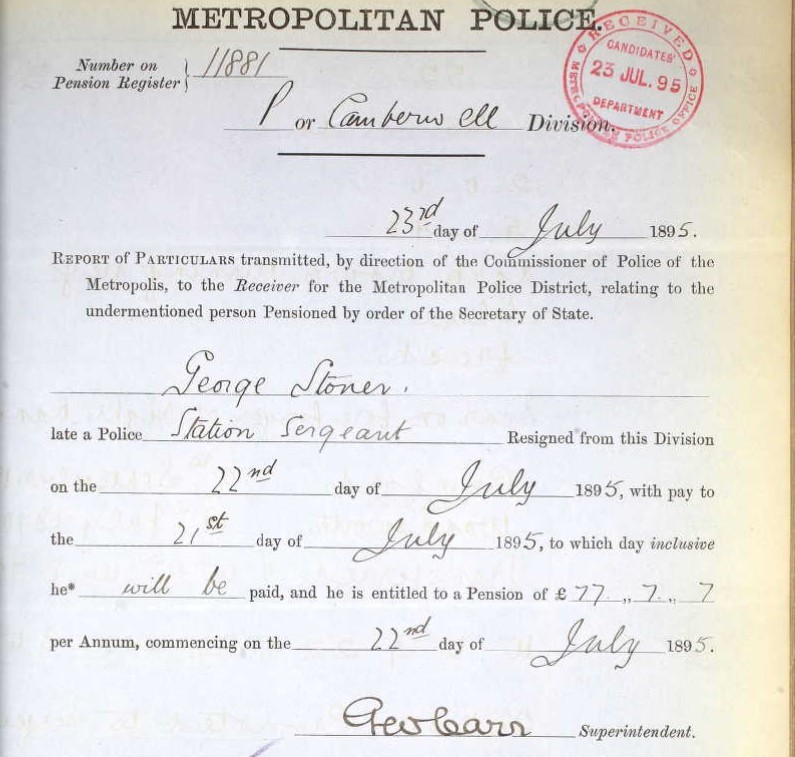 METROPOLITAN POLICE.
RECEIVED
CANDIDATES'
23 JUL. 95
DEPARTMENT
METROPOLITAN POLICE OFFICE
Number on
Pension Register } 11881
P or Camberwell Division.
23rd day of July 1895.
REPORT of PARTICULARS transmitted, by direction of the Commissioner of Police of the
Metropolis, to the Receiver for the Metropolitan Police District, relating to the
undermentioned person Pensioned by order of the Secretary of State.
George Stoner.
late a Police Station Sergeant Resigned from this Division
on the 22nd day of July 1895, with pay to
the 21st day of July 1895, to which day inclusive
he* will be paid, and he is entitled to a Pension of £ 77 ,, 7 ,, 7
per Annum, commencing on the 22nd day of July 1895.
Geo Carr Superintendent.